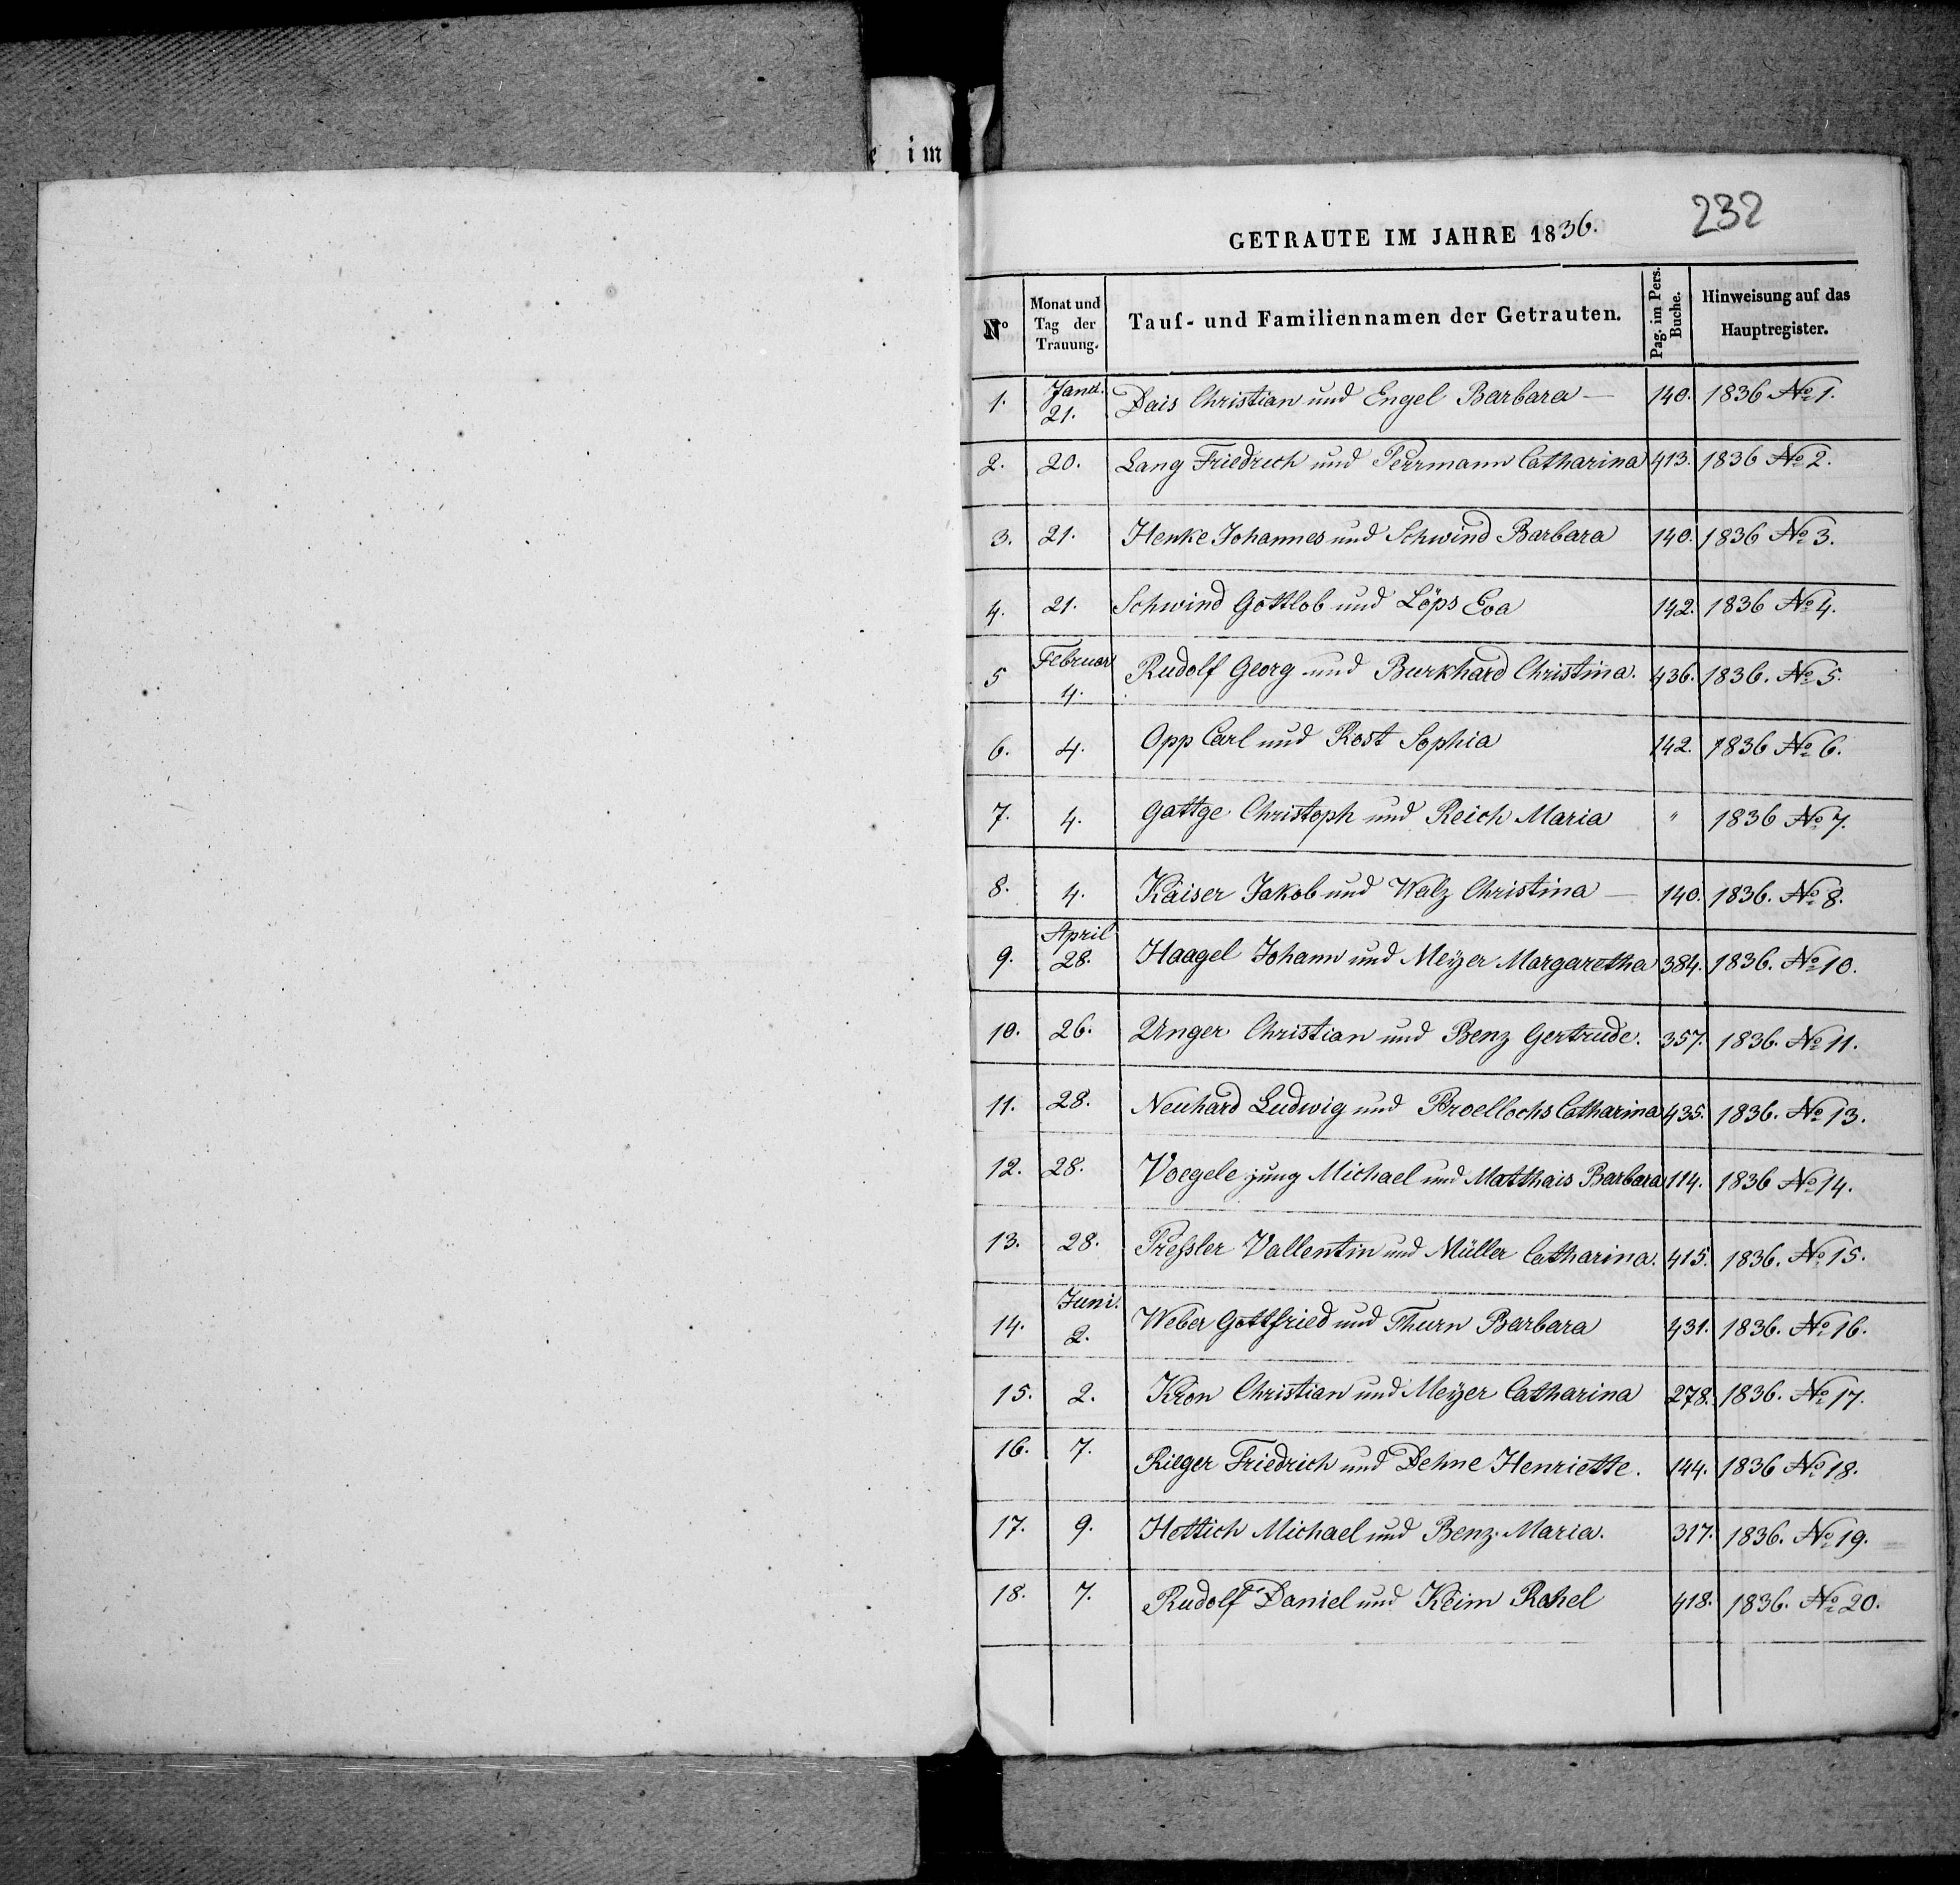 e im
232
GETRAUTE IM JAHRE 1836.
Nº | Monat und Tag der Trauung. | Tauf- und Familiennamen der Getrauten. | Pag. im Pers. Buche. | Hinweisung auf das Hauptregister.
1. | Janu. 21. | Dais Christian und Engel Barbara — | 140. | 1836 Nº 1.
2. | 20. | Lang Friedrich und Perrmann Catharina | 413. | 1836 Nº 2.
3. | 21. | Henke Johannes und Schwind Barbara | 140. | 1836 Nº 3.
4. | 21. | Schwind Gottlob und Löps Eva | 142. | 1836 Nº 4.
5 | Februar 4. | Rudolf Georg und Burkhard Christina. | 436. | 1836. Nº 5.
6. | 4. | Opp Carl und Rost Sophia | 142. | 1836 Nº 6.
7. | 4. | Gattge Christoph und Reich Maria | " | 1836 Nº 7.
8. | 4. | Kaiser Jakob und Walz Christina — | 140. | 1836. Nº 8.
9. | April 28. | Haagel Johann und Meÿer Margaretha | 384. | 1836. Nº 10.
10. | 26. | Unger Christian und Benz Gertrude. | 357. | 1836. Nº 11.
11. | 28. | Neuhard Ludwig und Broellochs Catharina | 435. | 1836. Nº 13.
12. | 28. | Voegele jung Michael und Matthais Barbara | 114. | 1836 Nº 14.
13. | 28. | Preßler Vallentin und Müller Catharina. | 415. | 1836. Nº 15.
14. | Juni. 2. | Weber Gottfried und Thurn Barbara | 431. | 1836. Nº 16.
15. | 2. | Kron Christian und Meÿer Catharina | 278. | 1836. Nº 17.
16. | 7. | Rieger Friedrich und Dehne Henriette. | 144. | 1836 Nº 18.
17. | 9. | Hettich Michael und Benz Maria. | 317. | 1836. Nº 19.
18. | 7. | Rudolf Daniel und Keim Rahel | 418. | 1836. Nº 20.